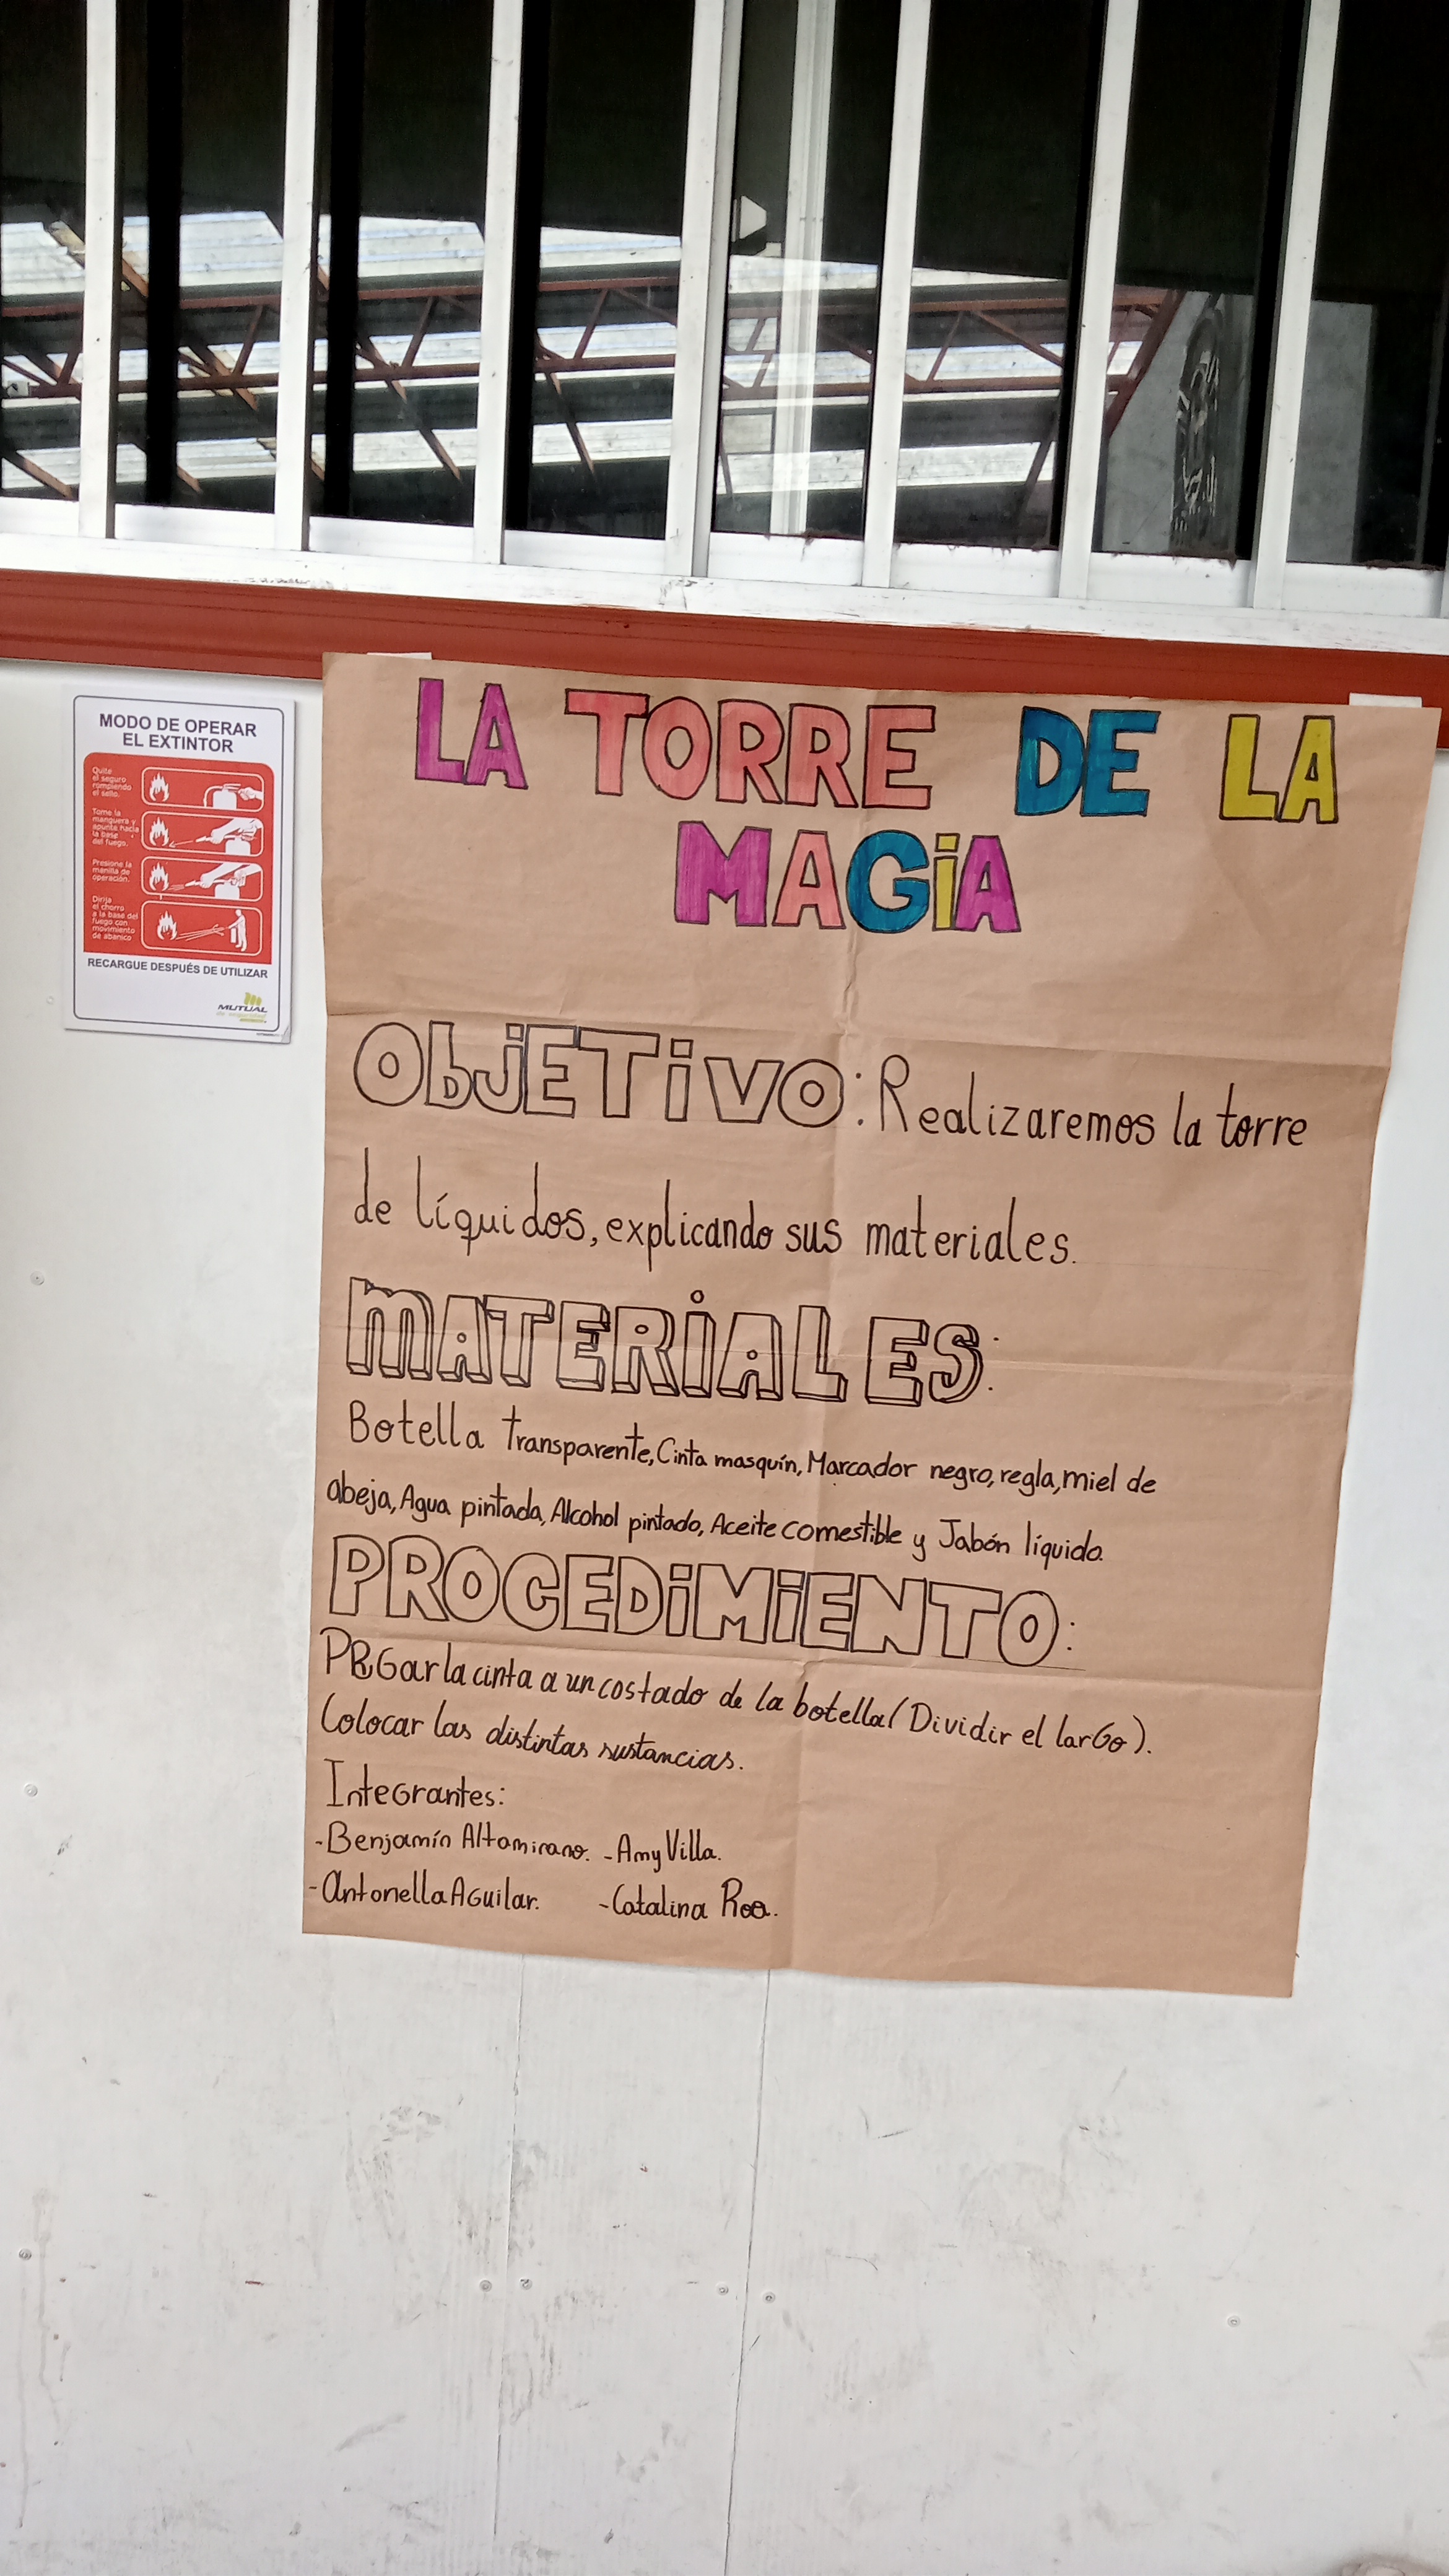 MODO DE OPERAR
EL EXTINTOR
Quite
el seguro
rompiendo
el sello.
Tome la
manguera y
apunte hacia
la base
del fuego.
Presione la
manilla de
operación.
Dirija
el chorro
a la base del
fuego con
movimiento
de abanico
RECARGUE DESPUÉS DE UTILIZAR
MUTUAL
de seguridad
LA TORRE DE LA
MAGiA
ObjETiVO: Realizaremos la torre
de líquidos, explicando sus materiales.
MATERiALES:
Botella transparente, Cinta masquín, Marcador negro, regla, miel de
abeja, Agua pintada, Alcohol pintado, Aceite comestible y Jabón líquido.
PROCEDiMiENTO:
PEGar la cinta a un costado de la botella (Dividir el larGo).
Colocar las distintas sustancias.
InteGrantes:
-Benjamín Altamirano. -Amy Villa.
-Antonella AGuilar. -Catalina Roa.